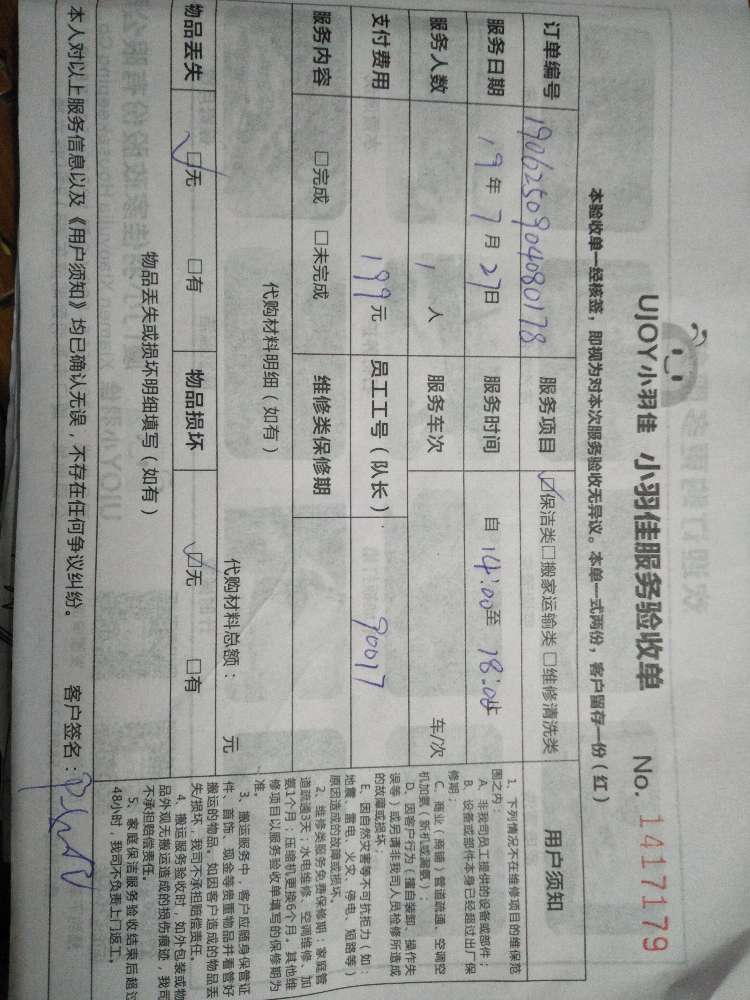 UJOY小羽佳 小羽佳服务验收单 No. 1417179
本验收单一经核签，即视为对本次服务验收无异议。本单一式两份，客户留存一份（红）
订单编号 1906250904080178 服务项目 ☑保洁类□搬家运输类□维修清洗类
服务日期 19年7月27日 服务时间 自14:00至18:00
服务人数 1人 服务车次 车/次
支付费用 199元 员工工号（队长） 90017
服务内容 □完成 □未完成 维修类保修期
代购材料明细（如有） 代购材料总额： 元
物品丢失 ☑无 □有 物品损坏 ☑无 □有
物品丢失或损坏明细填写（如有）
本人对以上服务信息以及《用户须知》均已确认无误，不存在任何争议纠纷。 客户签名：
用户须知
1、下列情况不在维修项目的维保范
围之内：
A、非我司员工提供的设备或部件；
B、设备或部件本身已经超过出厂保
修期；
C、商业（商铺）管道疏通、空调空
机加氨（新机或漏氨）；
D、因客户行为（擅自装卸、操作失
误等）或另请非我司人员检修所造成
的故障或损坏；
E、因自然灾害等不可抗拒力（如：
地震、雷电、火灾、停电、短路等）
原因造成的故障或损坏。
2、维修类服务免费保修期：家庭管
道疏通3天；水电维修、空调维修、加
氨1个月；压缩机更换6个月。其他维
修项目以服务验收单填写的保修期为
准。
3、搬运服务中，客户应随身保管证
件、首饰、现金等贵重物品并看管好
搬运的物品，如因客户造成的物品丢
失/损坏，我司不承担赔偿责任。
4、搬运服务验收时，如外包装或物
品外观无搬运造成的损伤痕迹，我司
不承担赔偿责任。
5、家庭保洁服务验收结束后超过
48小时，我司不负责上门返工。